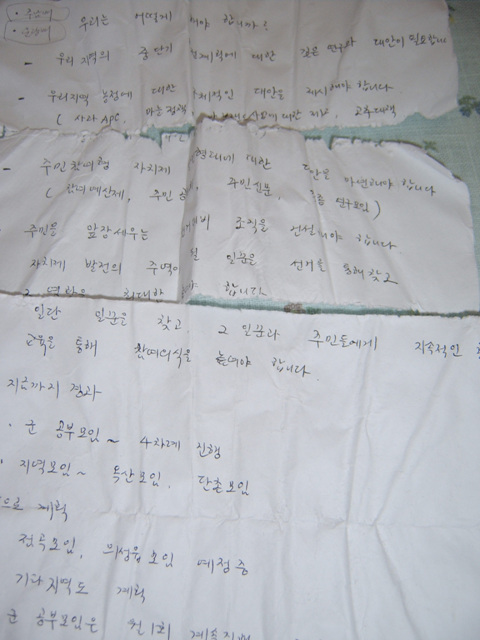 우리는 어떻게 해야 합니까?
- 우리 지역의 중단기 대한 깊은 연구와 대안이 필요합니다
- 우리지역 농정에 대한 대안을 제시해야 합니다
- 주민참여형 자치제 대한 대안을 마련해야 합니다
( 참여예산제, 주민 주민신문, 각종 연구모임 )
주민을 앞장세우는 조직을 건설해야 합니다.
자치제 발전의 주역이 될 일꾼을 선거를 통해 찾고
합니다
일단 일꾼을 찾고 그 일꾼과 주민들에게 지속적인
교육을 통해 참여의식을 높여야 합니다.
지금까지 경과
· 군 공부모임 ~ 4차례 진행
· 지역모임 ~ 옥산모임, 단촌모임
으로 계획
점곡모임, 의성읍모임 예정중
기타지역도 계획
군 공부모임은 월1회 계속진행